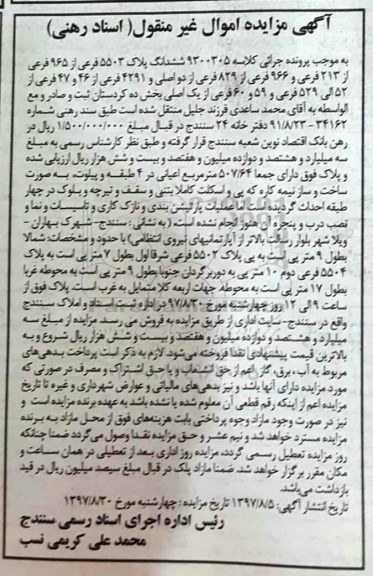 آگهی مزایده اموال غیر منقول( اسناد رهنی)
به موجب پرونده اجرائی کلاسه ۹۳۰۰۳۰۵ ششدانگ پلاک ۵۵۰۳ فرعی از ۹۶۵ فرعی
از ۲۱۳ فرعی و ۹۶۶ فرعی از ۸۲۹ فرعی از دو اصلی و ۴۲۹۱ فرعی از ۴۶ و ۴۷ فرعی از
۵۲ الی ۵۲۹ فرعی و ۵۹ و ۶۰ فرعی از یک اصلی بخش ده کردستان ثبت و صادر و مع
الواسطه به آقای محمد ساعدی فرزند جلیل منتقل شده است طبق سند رهنی شماره
۳۴۱۶۲ - ۹۱/۸/۲۳ دفتر خانه ۲۴ سنندج در قبال مبلغ ۱/۵۰۰/۰۰۰/۰۰۰ ریال در
رهن بانک اقتصاد نوین شعبه سنندج قرار گرفته و طبق نظر کارشناس رسمی به مبلغ
سه میلیارد و هشتصد و دوازده میلیون و هفتصد و بیست و شش هزار ریال ارزیابی شده
و پلاک فوق دارای جمعا ۵۰۷/۶۴ مترمربع اعیانی در ۴ طبقه و پیلوت، به صورت
ساخت و ساز نیمه کاره که پی و اسکلت کاملا بتنی و سقف و تیرچه و بلوک در چهار
طبقه احداث گردیده است عملیات پارتیشن بندی و نازک کاری و تاسیسات و نما و
نصب درب و پنجره آن هنوز انجام نشده است، (به نشانی : سنندج- شهرک بهاران -
ویلا شهر بلوار رسالت بالاتر از آپارتمانهای نیروی انتظامی) با حدود و مشخصات: شمالا
بطول ۹ متر پی است به پی پلاک ۵۵۰۲ فرعی شرقا اول بطول ۷ متر پی است به پلاک
۵۵۰۴ فرعی دوم ۱۰ متر پی به دوربرگردان جنوبا بطول ۹ متر پی است به محوطه غربا
بطول ۱۷ متر پی است به محوطه. جهات اربعه کلا متمایل به غرب است. پلاک فوق از
ساعت ۹ الی ۱۲ روز چهارشنبه مورخ ۹۷/۸/۳۰ در اداره ثبت اسناد و املاک سنندج
واقع در سنندج- سایت اداری از طریق مزایده به فروش می رسد. مزایده از مبلغ سه
میلیارد و هشتصد و دوازده میلیون و هفتصد و بیست و شش هزار ریال شروع و به
بالاترین قیمت پیشنهادی نقدا فروخته می‌شود. لازم به ذکر است پرداخت بدهی‌های
مربوط به آب، برق، گاز، اعم از حق انشعاب و یا حق اشتراک و مصرف در صورتی که
مورد مزایده دارای آنها باشد و نیز بدهی‌های مالیاتی و عوارض شهرداری و غیره تا تاریخ
مزایده اعم از اینکه رقم قطعی آن معلوم شده یا نشده باشد به عهده برنده مزایده است و
نیز در صورت وجود مازاد وجوه پرداختی بابت هزینه‌های فوق از محل مازاد به برنده
مزایده مسترد خواهد شد و نیم عشر و حق مزایده نقدا وصول می‌گردد ضمنا چنانکه
روز مزایده تعطیل رسمی گردد، مزایده روز اداری بعد از تعطیلی در همان ساعت و
مکان مقرر برگزار خواهد شد. ضمنا مازاد پلاک در قبال مبلغ سیصد میلیون ریال در قید
بازداشت می‌باشد.
تاریخ انتشار آگهی: ۱۳۹۷/۸/۵ تاریخ مزایده : چهارشنبه مورخ ۱۳۹۷/۸/۳۰
رئیس اداره اجرای اسناد رسمی سنندج
محمد علی کریمی نسب